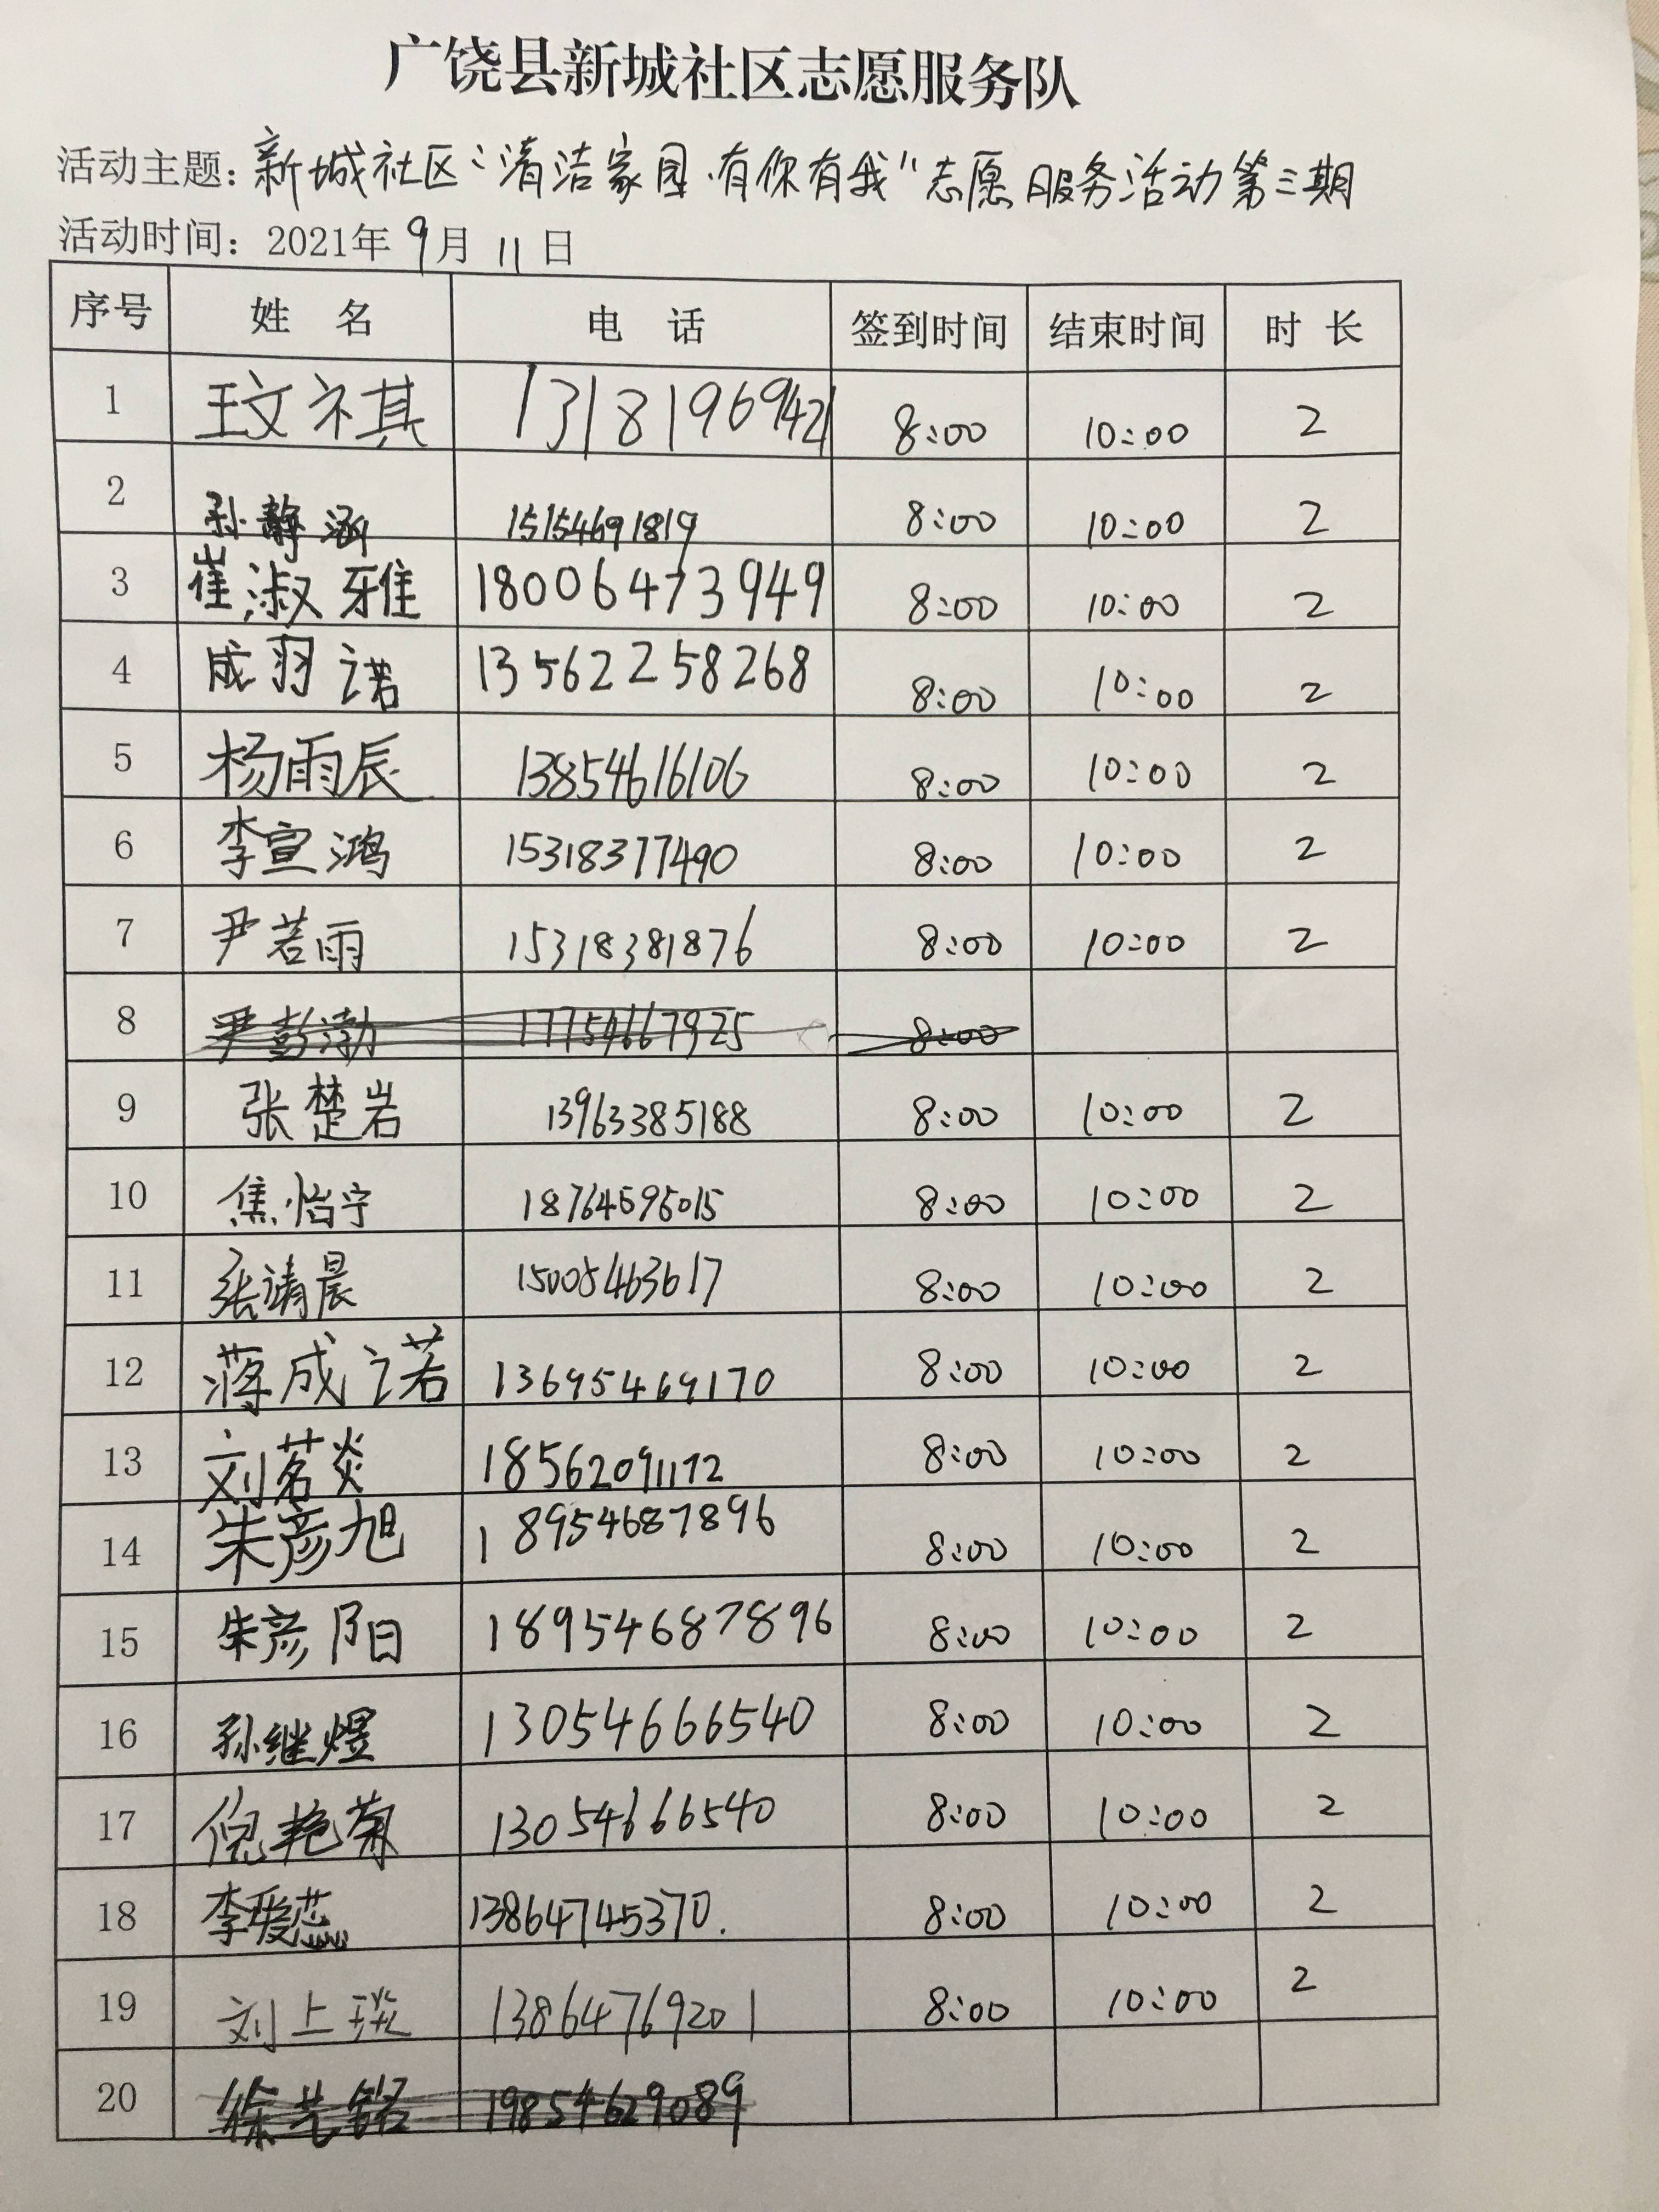 广饶县新城社区志愿服务队
活动主题:新城社区“清洁家园·有你有我”志愿服务活动第三期
活动时间:2021年9月11日
序号 姓名 电话 签到时间 结束时间 时长
1 王文祺 1318196942 8:00 10:00 2
2 孙静涵 15154691819 8:00 10:00 2
3 崔淑雅 18006473949 8:00 10:00 2
4 成羽诺 13562258268 8:00 10:00 2
5 杨雨辰 13854616106 8:00 10:00 2
6 李宣鸿 15318377490 8:00 10:00 2
7 尹若雨 15318381876 8:00 10:00 2
8 尹彭渤 17754667925 8:00
9 张楚岩 13963385188 8:00 10:00 2
10 焦怡宁 18764596015 8:00 10:00 2
11 张靖晨 15005463617 8:00 10:00 2
12 蒋成诺 13695469170 8:00 10:00 2
13 刘茗炎 18562091172 8:00 10:00 2
14 朱彦旭 18954687896 8:00 10:00 2
15 朱彦阳 18954687896 8:00 10:00 2
16 孙继煜 13054666540 8:00 10:00 2
17 倪艳菊 13054666540 8:00 10:00 2
18 李爱蕊 13864745370. 8:00 10:00 2
19 刘上 13864769201 8:00 10:00 2
20 19854629089